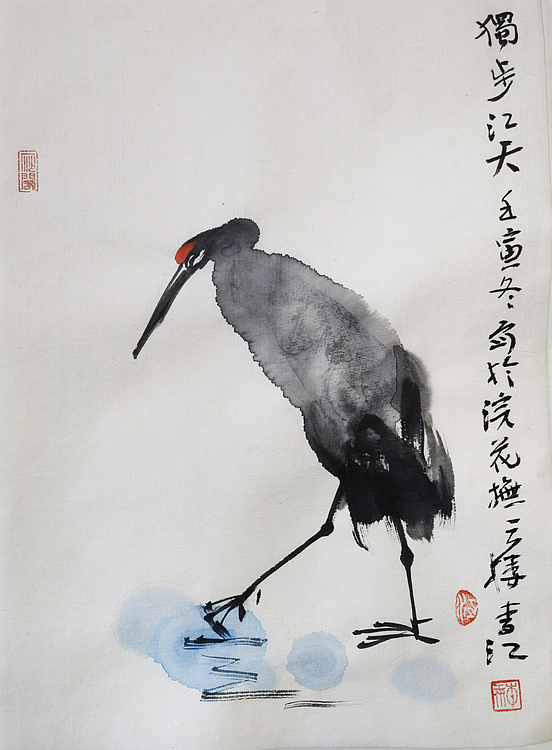 獨步江天 壬寅冬寫於浣花撫云樓 書江